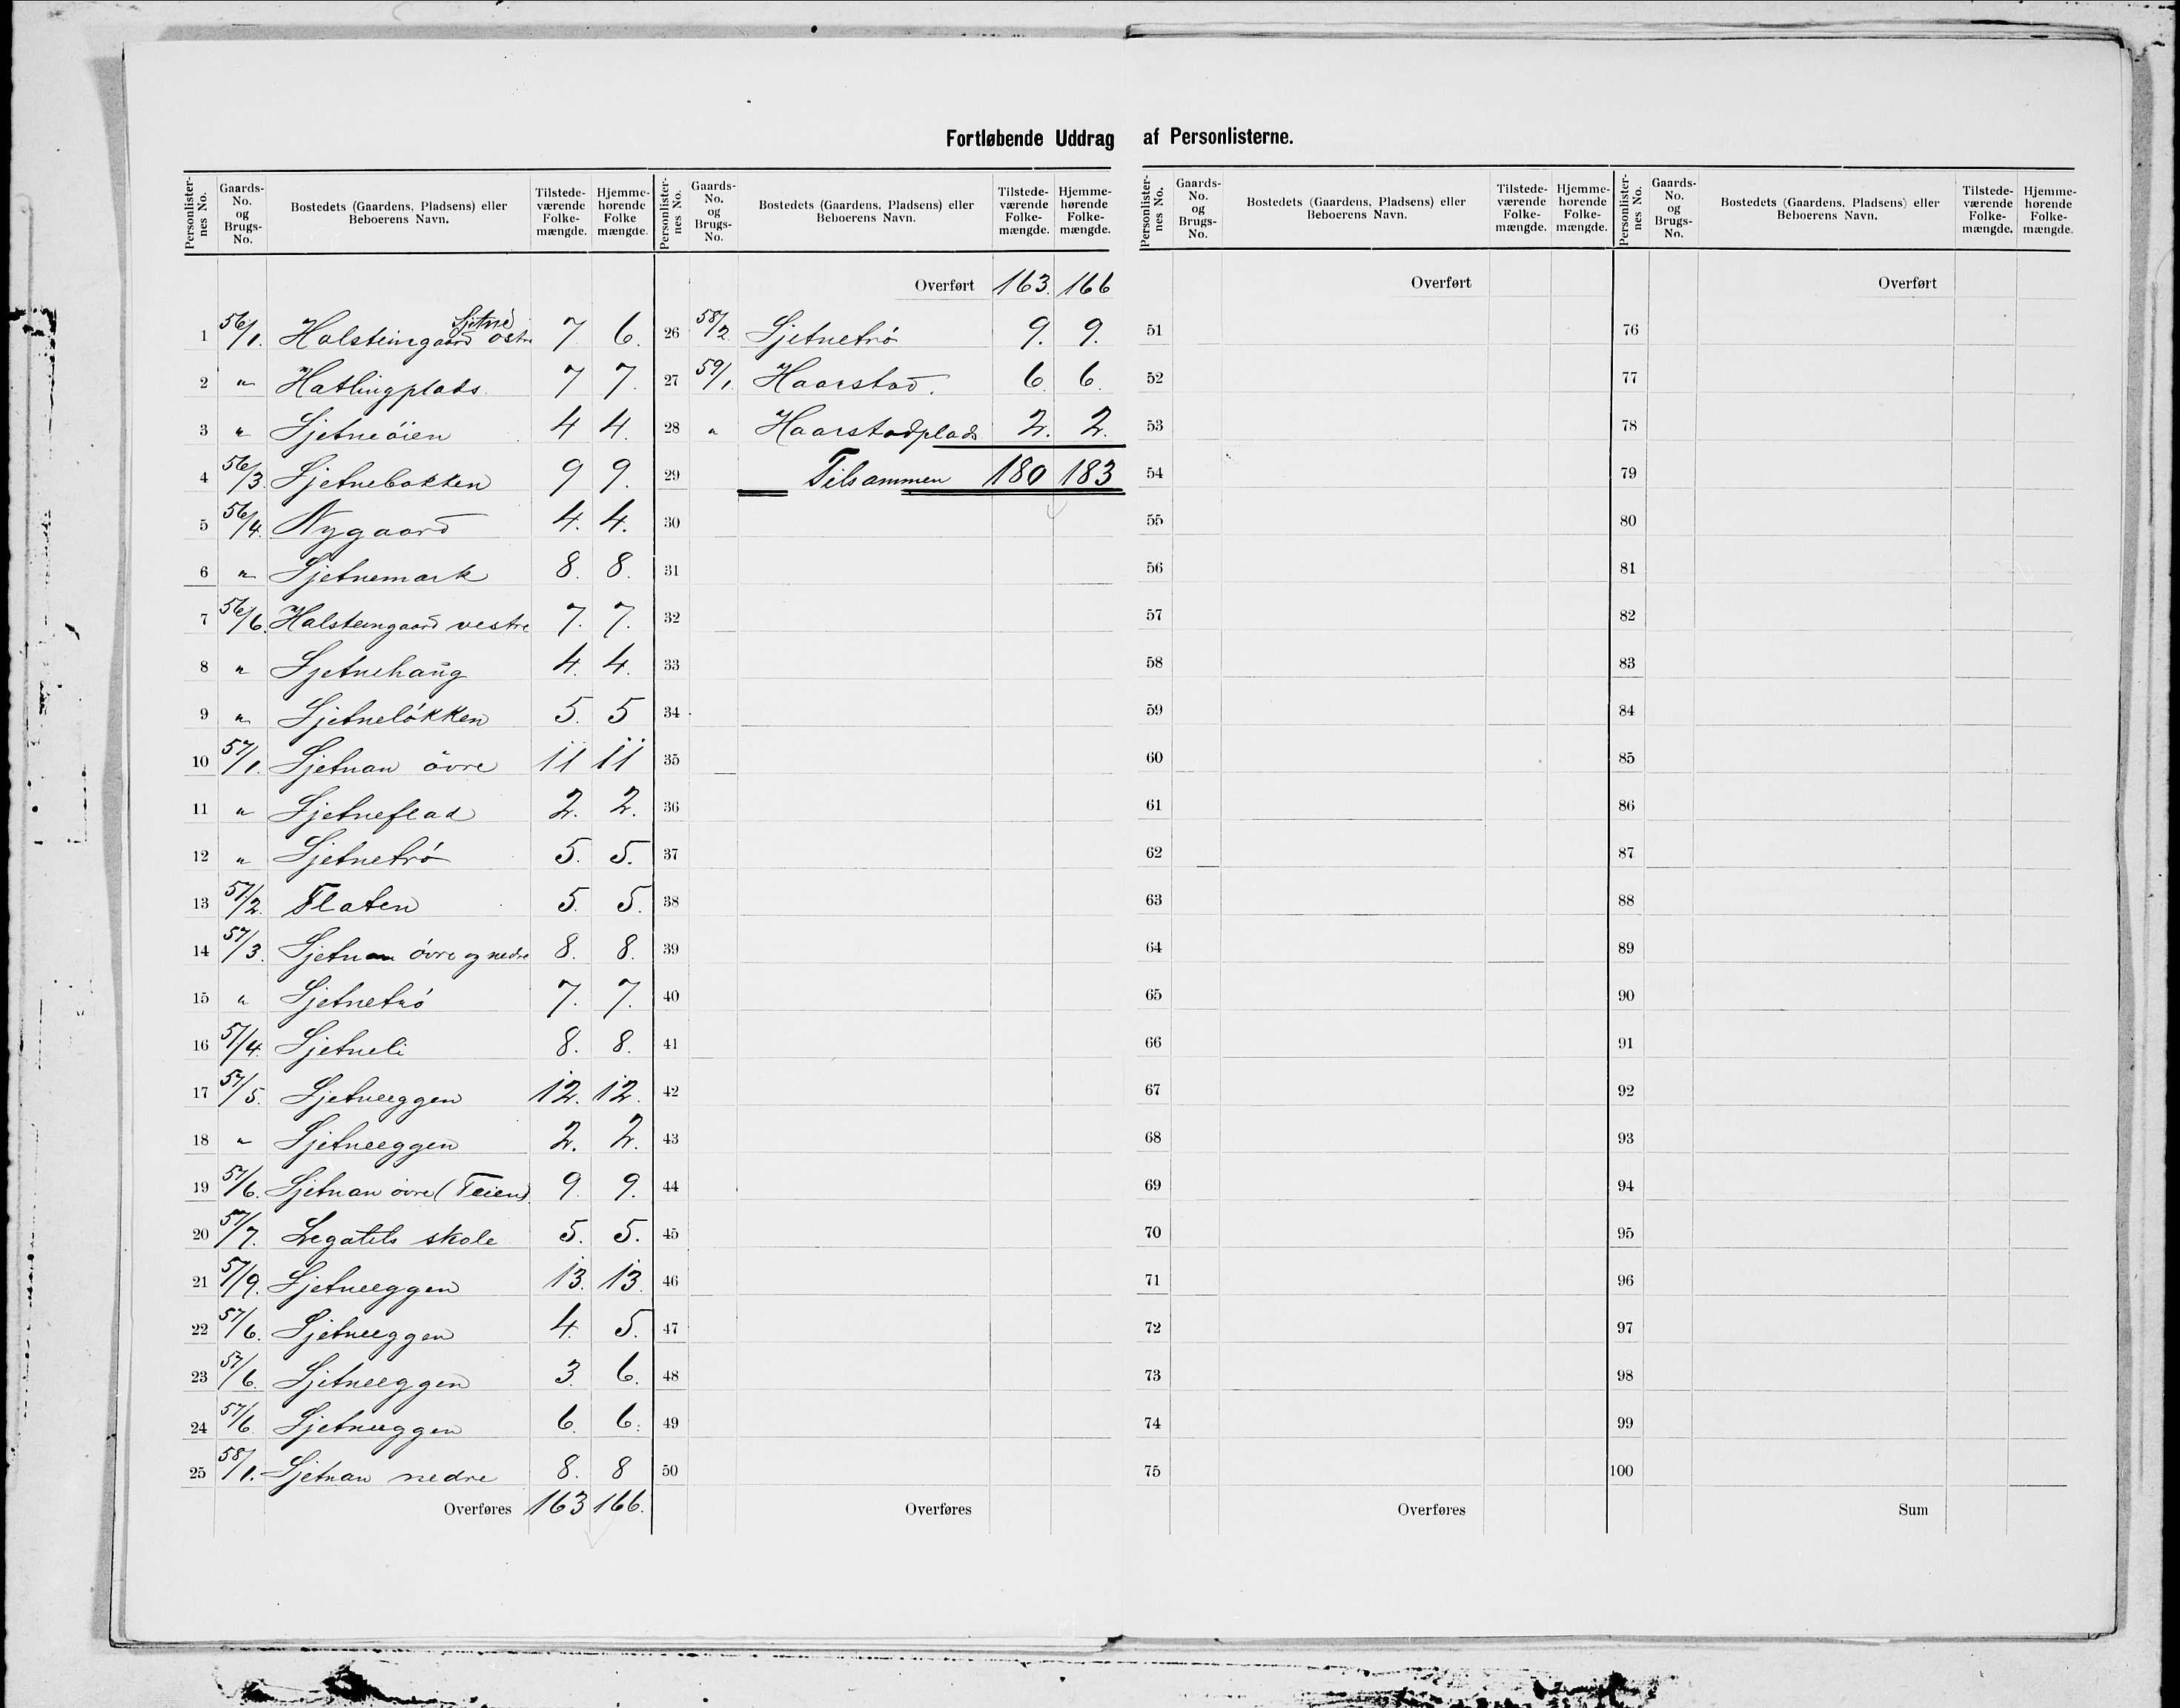 Fortløbende Uddrag af Personlisterne.
Personlister-nes No. Gaards-No. og Brugs-No. Bostedets (Gaardens, Pladsens) eller Beboerens Navn. Tilstede-værende Folke-mængde. Hjemme-hørende Folke mængde. Personlister-nes No. Gaards-No. og Brugs-No. Bostedets (Gaardens, Pladsens) eller Beboerens Navn. Tilstede-værende Folke-mængde. Hjemme-hørende Folke-mængde. Personlister-nes No. Gaards-No. og Brugs-No. Bostedets (Gaardens, Pladsens) eller Beboerens Navn. Tilstede-værende Folke-mængde. Hjemme-hørende Folke-mængde. Personlister-nes No. Gaards-No. og Brugs-No. Bostedets (Gaardens, Pladsens) eller Beboerens Navn. Tilstede-værende Folke-mængde. Hjemme-hørende Folke-mængde.
1 56/1. Halsteingaard Sjetne östre 7 6.
2 " Hatlingplads. 7 7.
3 " Sjetneöien 4 4.
4 56/3. Sjetnebakken 9 9.
5 56/4. Nygaard 4. 4.
6 " Sjetnemark 8. 8.
7 56/6. Halsteingaard vestre 7. 7.
8 " Sjetnehaug 4. 4.
9 " Sjetnelökken 5. 5
10 57/1. Sjetnan övre 11 11
11 " Sjetneflad 2. 2.
12 " Sjetnetrö 5. 5.
13 57/2. Flaten 5. 5.
14 57/3. Sjetnan övre og nedre 8. 8.
15 " Sjetnetrö 7. 7.
16 57/4. Sjetneli 8. 8.
17 57/5. Sjetneeggen 12. 12.
18 " Sjetneeggen 2. 2.
19 57/6. Sjetnan övre (Teien) 9. 9.
20 57/7. Legatets skole 5. 5.
21 57/9. Sjetneeggen 13. 13.
22 57/6. Sjetneeggen 4. 5.
23 57/6. Sjetneeggen 3. 6.
24 57/6. Sjetneeggen 6. 6.
25 58/1. Sjetnan nedre 8. 8
Overføres 163 166.
Overført 163. 166
26 58/2. Sjetnetrö 9. 9.
27 59/1. Haarstad. 6. 6.
28 " Haarstadplads 2. 2.
29 Tilsammen 180 183
30
31
32
33
34
35
36
37
38
39
40
41
42
43
44
45
46
47
48
49
50
Overføres
Overført
51
52
53
54
55
56
57
58
59
60
61
62
63
64
65
66
67
68
69
70
71
72
73
74
75
Overføres
Overført
76
77
78
79
80
81
82
83
84
85
86
87
88
89
90
91
92
93
94
95
96
97
98
99
100
Sum